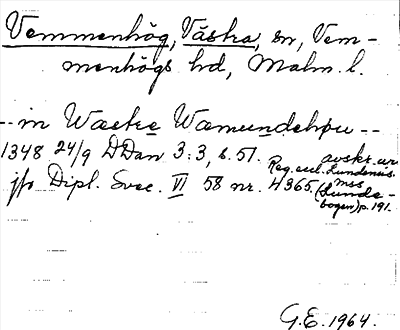 Vemmenhög, Västra, sn, Vem-
menhögs hd, Malm. l.
-- in Wæstre Wæmundehøu --
1348 24/9 DDan 3:3, s. 51. avskr. ur
Reg. eccl. Lundensis.
jfr Dipl. Svec. VI 58 nr. 4365. mss
(Lunde-
bogen) p. 191.
G.E. 1964.